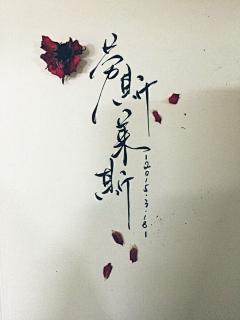 劳斯莱斯
-2015.3.18-